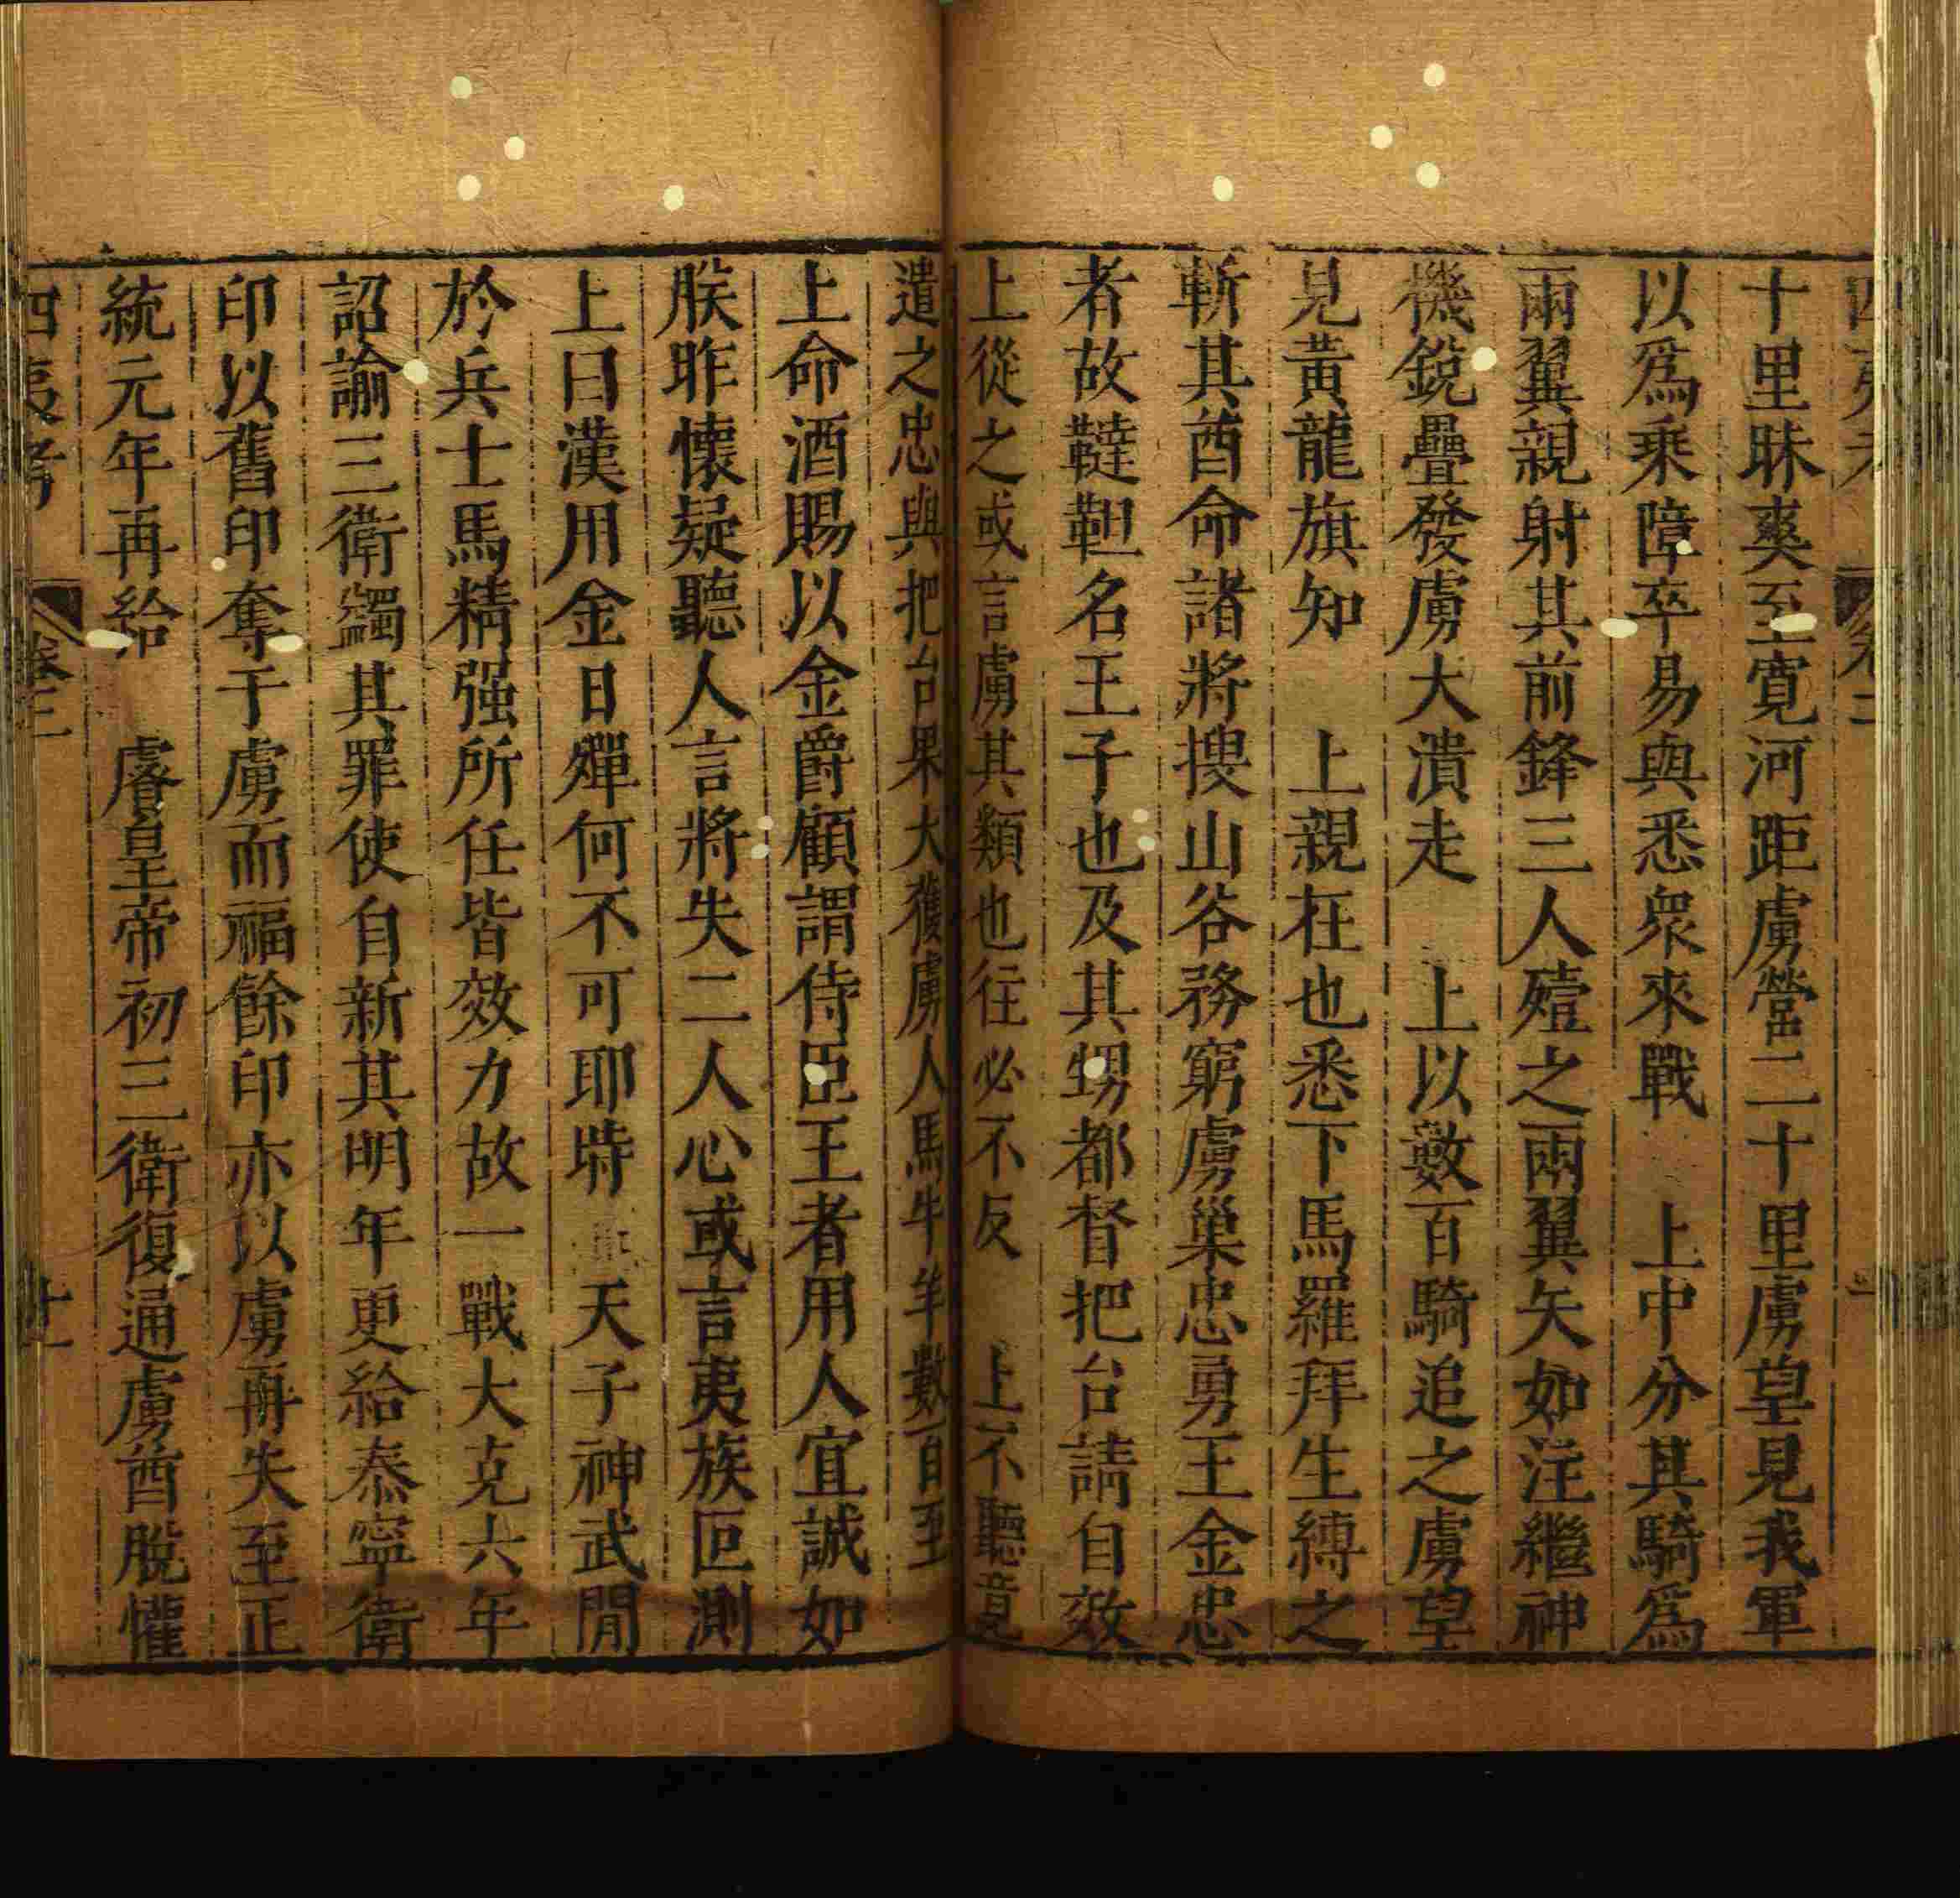 十里昧爽至寬河距虜營二十里虜望見我軍
以爲乘障卒易與悉衆來戰　上中分其騎爲
兩翼親射其前鋒三人殪之兩翼矢如注繼神
機銃疊發虜大潰走　上以數百騎追之虜望
見黃龍旗知　上親在也悉下馬羅拜生縛之
斬其酋命諸將搜山谷務窮虜巢忠勇王金忠
者故韃靼名王子也及其甥都督把台請自效
上從之或言虜其類也往必不反　上不聽竟
遣之忠與把台果大獲虜人馬牛羊數百至
上命酒賜以金爵顧謂侍臣王者用人宜誠如
朕昨懷疑聽人言將失二人心或言夷族叵測
上曰漢用金日磾何不可耶時　天子神武閒
於兵士馬精强所任皆效力故一戰大克六年
詔諭三衛蠲其罪使自新其明年更給泰寧衛
印以舊印奪于虜而福餘印亦以虜再失至正
統元年再給　睿皇帝初三衛復通虜酋脫懽
四夷考　卷三　廿一